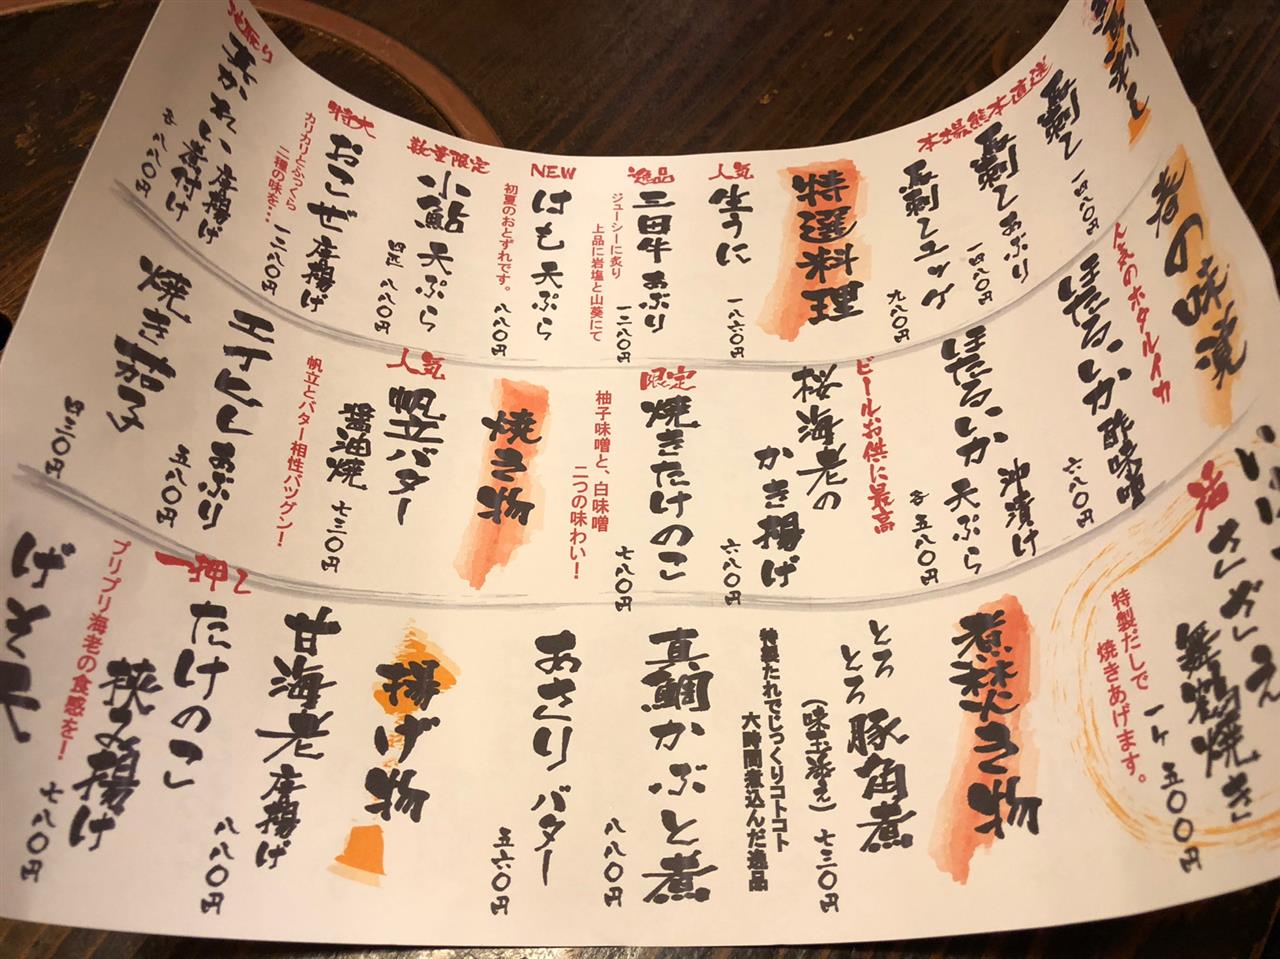 馬刺し
熊本直送
本場
馬刺し
一四八〇円
馬刺しあぶり
一四八〇円
馬刺しユッケ
九八〇円
特選料理
人気
生うに
一八六〇円
逸品
三田牛あぶり
ジューシーに炙り
上品に岩塩と山葵にて
一二八〇円
NEW
はも天ぷら
初夏のおとずれです。
八八〇円
数量限定
小鮎天ぷら
四匹 八八〇円
特大
おこぜ唐揚げ
カリカリとふっくら
二種の味を…
一二八〇円
地取り
真がれい 唐揚げ
煮付け
各 八八〇円
春の味覚
人気のホタルイカ
ほたるいか酢味噌
六八〇円
ほたるいか 沖漬け
天ぷら
各 五八〇円
ビールお供に最高
桜海老の
かき揚げ
六八〇円
限定
焼きたけのこ
柚子味噌と、白味噌
二つの味わい！
七八〇円
焼き物
人気
帆立バター
醤油焼
七三〇円
帆立とバター相性バツグン！
エイヒレあぶり
五八〇円
焼き茄子
四三〇円
活
さざえ
舞鶴焼き
特製だしで
焼きあげます。
一ケ 五〇〇円
煮炊き物
とろとろ豚角煮
（味玉添え）
七三〇円
特製たれでじっくりコトコト
六時間煮込んだ逸品
真鯛かぶと煮
八八〇円
あさりバター
五六〇円
揚げ物
甘海老唐揚げ
八八〇円
一押し
たけのこ
挟み揚げ
プリプリ海老の食感を！
七八〇円
げそ天